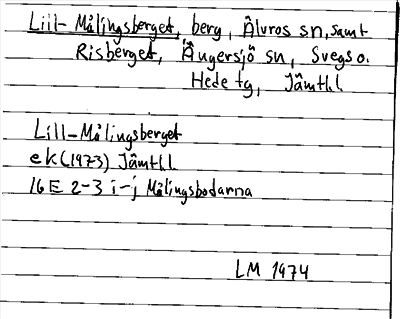 Lill-Målingsberget, berg, Älvros sn, samt
Risberget, Ängersjö sn, Svegs o.
Hede tg, Jämtl.l
Lill-Målingsberget
ek (1973) Jämtl.l
16E 2-3 i-j Målingsbodarna
LM 1974